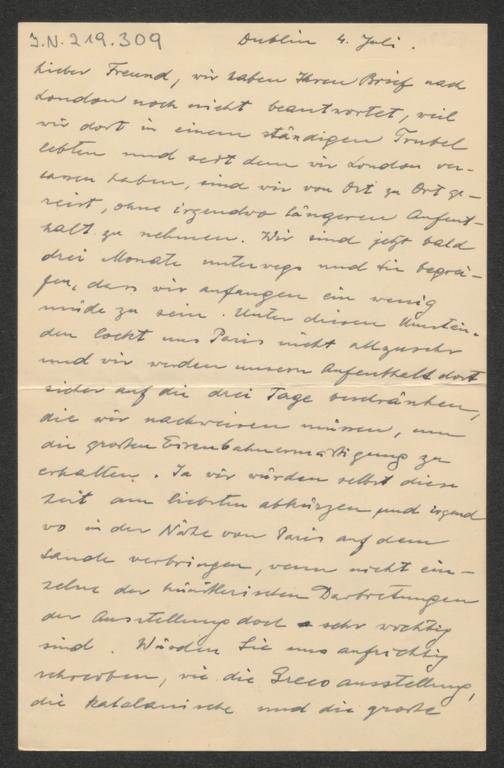 J.N. 219.309
Dublin 4. Juli.
Lieber Freund, wir haben Ihren Brief nach
London noch nicht beantwortet, weil
wir dort in einem ständigen Trubel
lebten und seit dem wir London ver-
lassen haben, sind wir von Ort zu Ort ge-
reist, ohne irgendwo längeren Aufent-
halt zu nehmen. Wir sind jetzt bald
drei Monate unterwegs und Sie begrei-
fen, dass wir anfangen ein wenig
müde zu sein. Unter diesen Umstän-
den lockt uns Paris nicht allzusehr
und wir werden unsern Aufenthalt dort
sicher auf die drei Tage beschränken,
die wir nachweisen müssen, um
die grossen Eisenbahnermässigung zu
erhalten. Ja wir würden selbst diese
Zeit am liebsten abkürzen und irgend
wo in der Nähe von Paris auf dem
Lande verbringen, wenn nicht ein-
zelne der künstlerischen Darbietungen
der Ausstellung doch sehr wichtig
sind. Würden Sie uns aufrichtig
schreiben, wie die Greco ausstellung,
die katalanische und die grosse